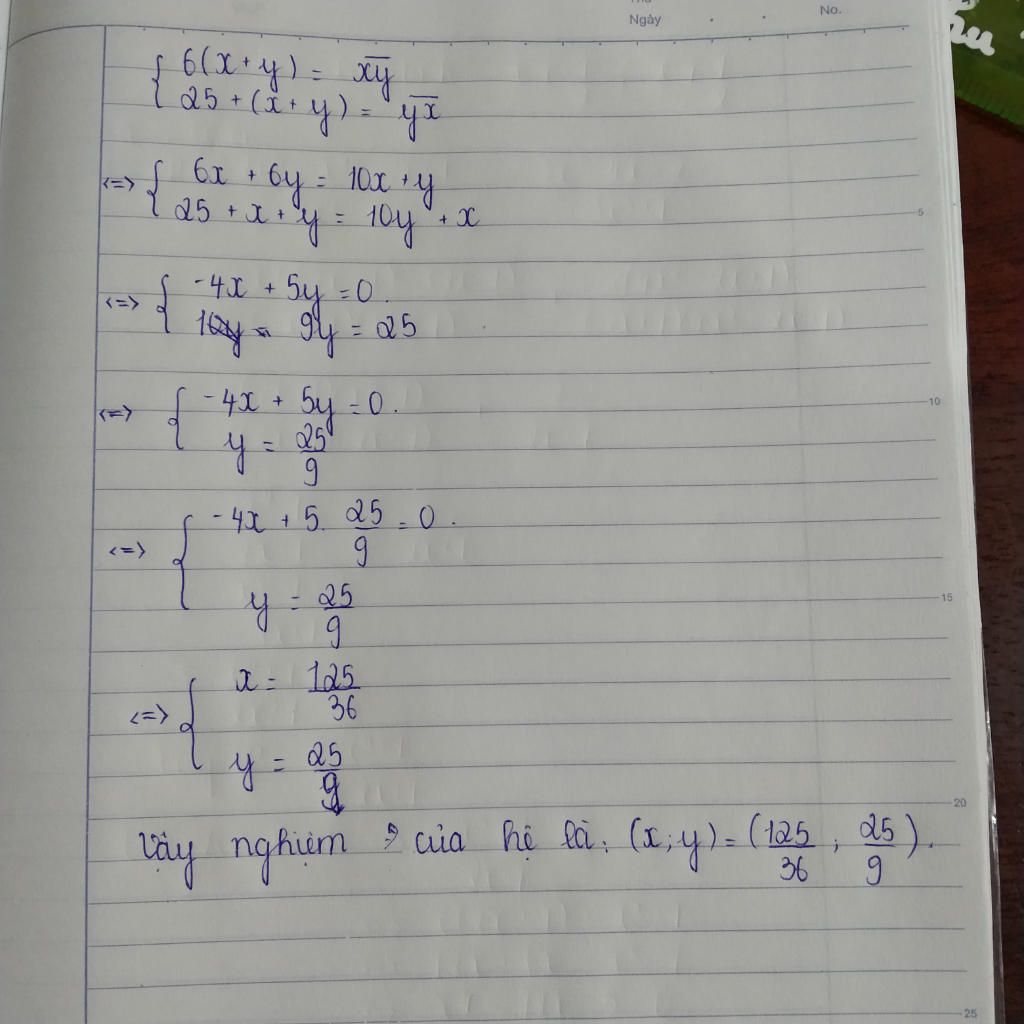 Thứ
Ngày . . No.
{ 6(x + y) = x̅y̅
25 + (x + y) = y̅x̅
<=> { 6x + 6y = 10x + y
25 + x + y = 10y + x
5
<=> { -4x + 5y = 0.
9y = 25
<=> { -4x + 5y = 0.
10
y = 25/9
<=> { -4x + 5. 25/9 = 0.
y = 25/9
15
<=> { x = 125/36
y = 25/9
20
Vậy nghiệm của hệ là: (x; y) = (125/36 ; 25/9).
25